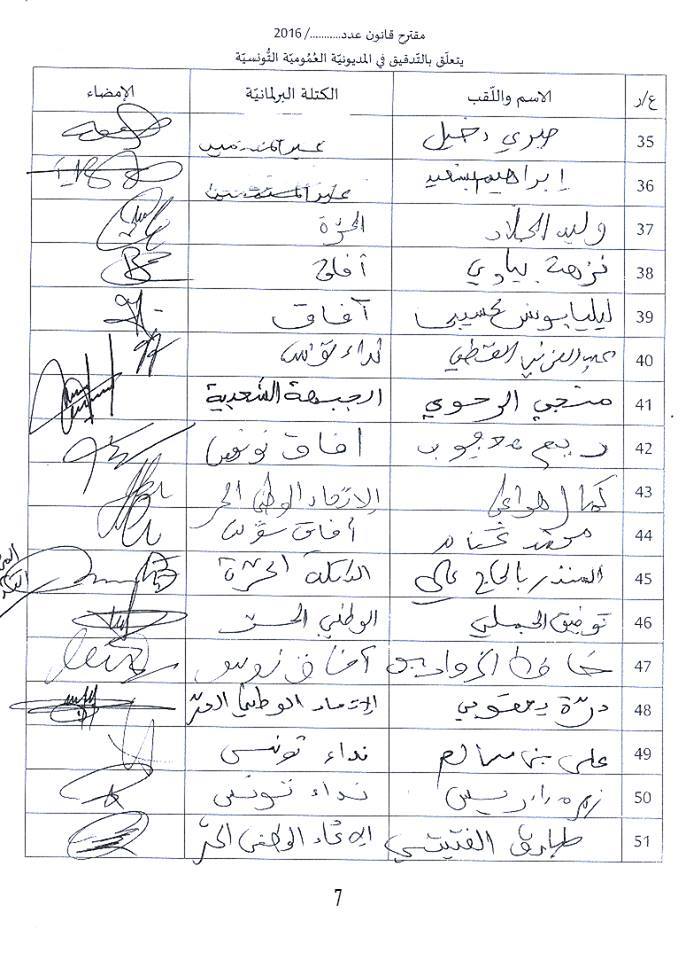 مقترح قانون عدد............/ 2016
يتعلّق بالتّدقيق في المديونيّة العُمُوميّة التُّونسيّة
ع/ر الاسم واللّقب الكتلة البرلمانيّة الإمضاء
35 صبري دخيل
36 إبراهيم بنسعيد
37 وليد الجلاد الحرّة
38 نزهة بياوي آفاق
39 ليليا يونس كسيبي آفاق
40 عبد العزيز القطي نداء تونس
41 منجي الرحوي الجبهة الشعبية
42 ريم محجوب آفاق تونس
43 كمال هراغي الاتحاد الوطني الحر
44 محمد غنام آفاق تونس
45 المنذر بالحاج علي الكتلة الحرّة
46 توفيق الجملي الوطني الحر
47 حافظ الزواري آفاق تونس
48 درّة يعقوبي الاتحاد الوطني الحرّ
49 علي بن سالم نداء تونس
50 زهرة إدريس نداء تونس
51 طارق الفتيتي الاتحاد الوطني الحرّ
7